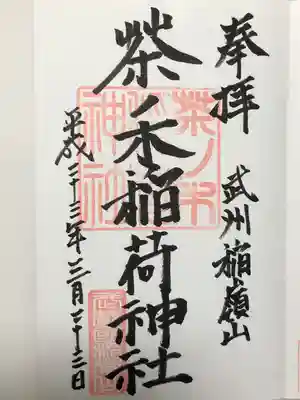 奉拝
武州稲嶺山
茶ノ木稲荷神社
茶ノ木稲荷神社
平成二十三年三月二十二日